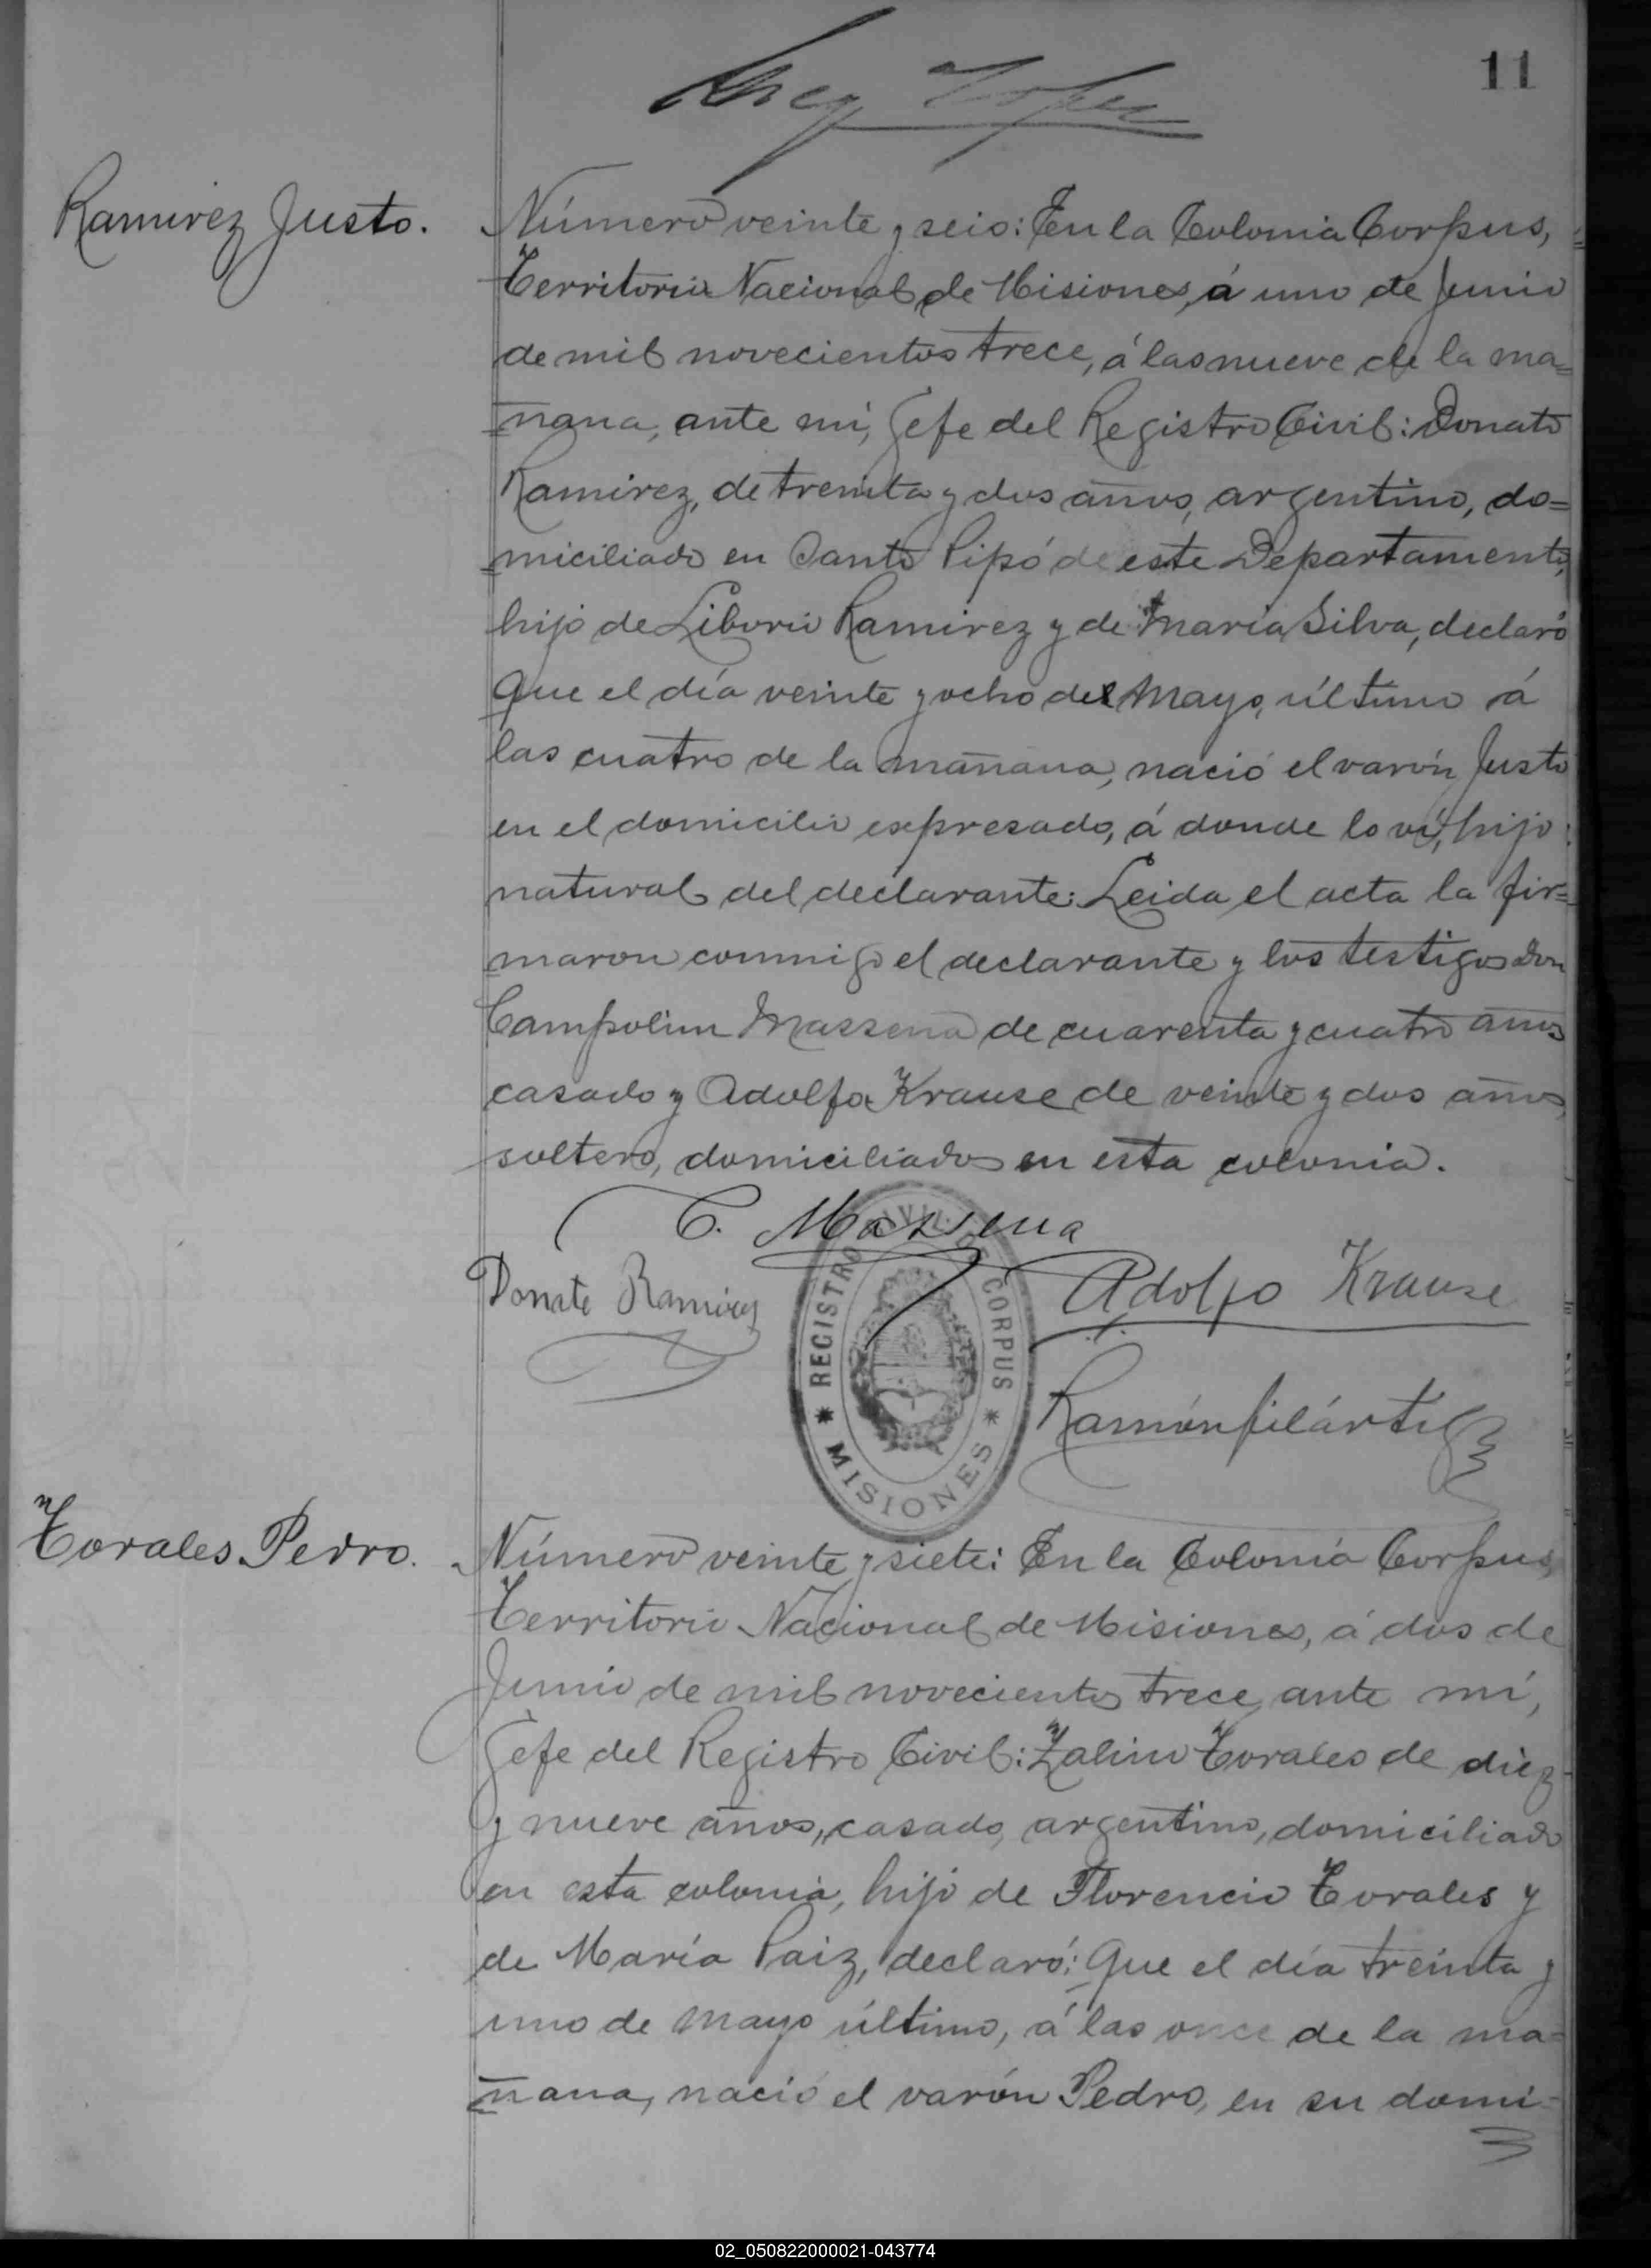 11
Ramirez Justo.
Número veinte y seis: En la Colonia Corpus,
Territorio Nacional de Misiones, á uno de Junio
de mil novecientos trece, á las nueve de la ma=
=ñana, ante mí, Gefe del Registro Civil: Donato
Ramirez, de treinta y dos años, argentino, do=
=miciliado en Santo Pipó de este Departamento,
hijo de Liborio Ramirez y de María Silva, declaró
Que el día veinte y ocho de Mayo, último á
las cuatro de la mañana, nació el varón Justo
en el domicilio expresado, á donde lo ví, hijo
natural del declarante: Leida el acta la fir=
=maron conmigo el declarante y los testigos Don
Campolim Massena de cuarenta y cuatro años
casado y Adolfo Krause de veinte y dos años,
soltero, domiciliados en esta colonia.
C. Massena
Donato Ramirez
Adolfo Krause
REGISTRO CIVIL DE CORPUS
* MISIONES *
Ramón
Torales Pedro.
Número veinte y siete: En la Colonia Corpus,
Territorio Nacional de Misiones, á dos de
Junio de mil novecientos trece, ante mí,
Gefe del Registro Civil: Zalino Torales de diez
y nueve años, casado, argentino, domiciliado
en esta colonia, hijo de Florencio Torales y
de María Paiz, declaró: Que el día treinta y
uno de Mayo último, á las once de la ma=
=ñana, nació el varón Pedro, en su domi=
02_050822000021-043774